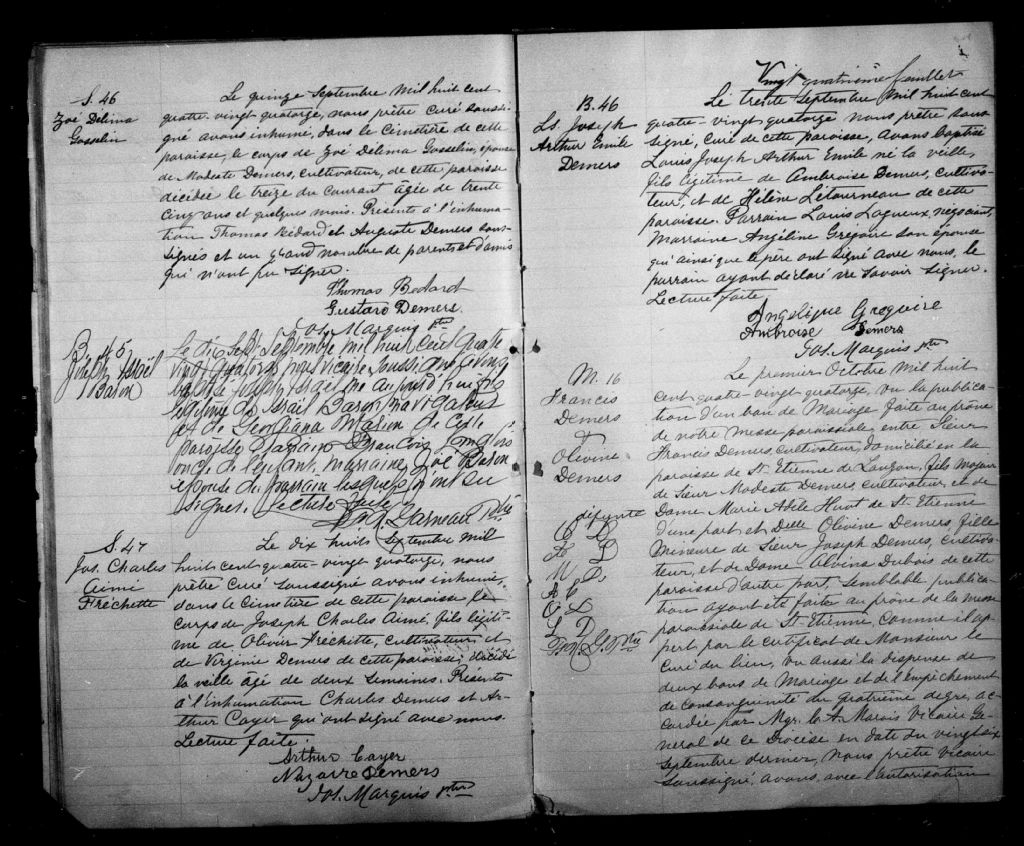 S. 46
Zoé Délima
Gosselin
Le quinze Septembre Mil huit cent
quatre-vingt quatorze, nous prêtre curé soussi-
gné avons inhumé, dans le cimetière de cette
paroisse, le corps de Zoé Délima Gosselin, épouse
de Modeste Demers, cultivateur, de cette paroisse
décédée le treize du courant âgée de trente
cinq ans et quelques mois. Présents à l'inhuma-
tion Thomas Bédard et Auguste Demers sous-
signés et un grand nombre de parents et d'amis
qui n'ont pu signer.
Thomas Bedard
Gustard Demers
Jos. Marquis Ptre
B. 45
Joseph Israël
Baron
Le dix sept Septembre mil huit cent quatre
vingt quatorze nous vicaire soussigné avons
baptisé Joseph Israël né
légitime de Israël Baron navigateur
et de Georgiana Marion de cette
paroisse Parrain François
oncle de l'enfant, marraine Zoé Baron
épouse du parrain lesquels n'ont su
signer. Lecture faite
Garneau Ptre
S. 47
Jos. Charles
Aimé
Fréchette
Le dix huit Septembre mil
huit cent-quatre-vingt quatorze, nous
prêtre Curé soussigné avons inhumé,
dans le Cimetière de cette paroisse le
corps de Joseph Charles Aimé, fils légiti-
me de Olivier Fréchette, cultivateur et
de Virginie Demers de cette paroisse, décédé
la veille âgé de deux semaines. Présents
à l'inhumation Charles Demers et Ar-
thur Cayer qui ont signé avec nous.
Lecture faite.
Arthur Cayer
Nazarre Demers
Jos. Marquis ptre
Vingt quatrième feuillet
B. 46
Ls. Joseph
Arthur Emile
Demers
Le trente Septembre Mil huit cent
quatre-vingt quatorze nous prêtre sous
signé, curé de cette paroisse, avons baptisé
Louis Joseph Arthur Emile né la veille,
fils légitime de Ambroise Demers, cultiva-
teur, et de Hélène Létourneau de cette
paroisse. Parrain Louis Lagueux, négociant,
Marraine Angéline Gregoire son épouse
qui ainsi que le père ont signé avec nous, le
parrain ayant déclaré ne savoir signer.
Lecture faite
Angelique Gregoire
Ambroise Demers
Jos. Marquis ptre
M. 16
Francis
Demers
&
Olivine
Demers
Le premier Octobre Mil huit
cent quatre-vingt quatorze, vu la publica-
tion d'un ban de Mariage faite au prône
de notre messe paroissiale entre Sieur
Francis Demers, cultivateur, domicilié en la
paroisse de St. Etienne de Lauzon, fils majeur
de Sieur Modeste Demers, cultivateur, et de
défunte
Dame Marie Adele Huot de St. Etienne
d'une part et Delle Olivine Demers, fille
Mineure de Sieur Joseph Demers, cultiva-
teur, et de Dame Alvina Dubois de cette
paroisse d'autre part, semblable publica-
tion ayant été faite au prône de la messe
paroissiale de St. Etienne, comme il ap-
pert par le certificat de Monsieur le
Curé du lieu, vu aussi la dispense de
deux bans de Mariage et de l'empêchement
de consanguinité du quatrième degré, ac-
cordée par Mgr. C. A. Marois Vicaire Gé-
néral de ce Diocèse en date du vingt six
Septembre dernier, Nous prêtre vicaire
soussigné, avons, avec l'autorisation